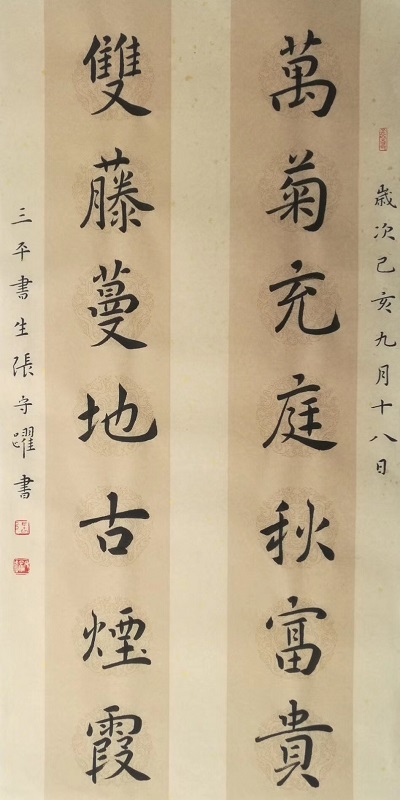 歲次己亥九月十八日
萬菊充庭秋富貴
雙藤蔓地古煙霞
三平書生張守躍書